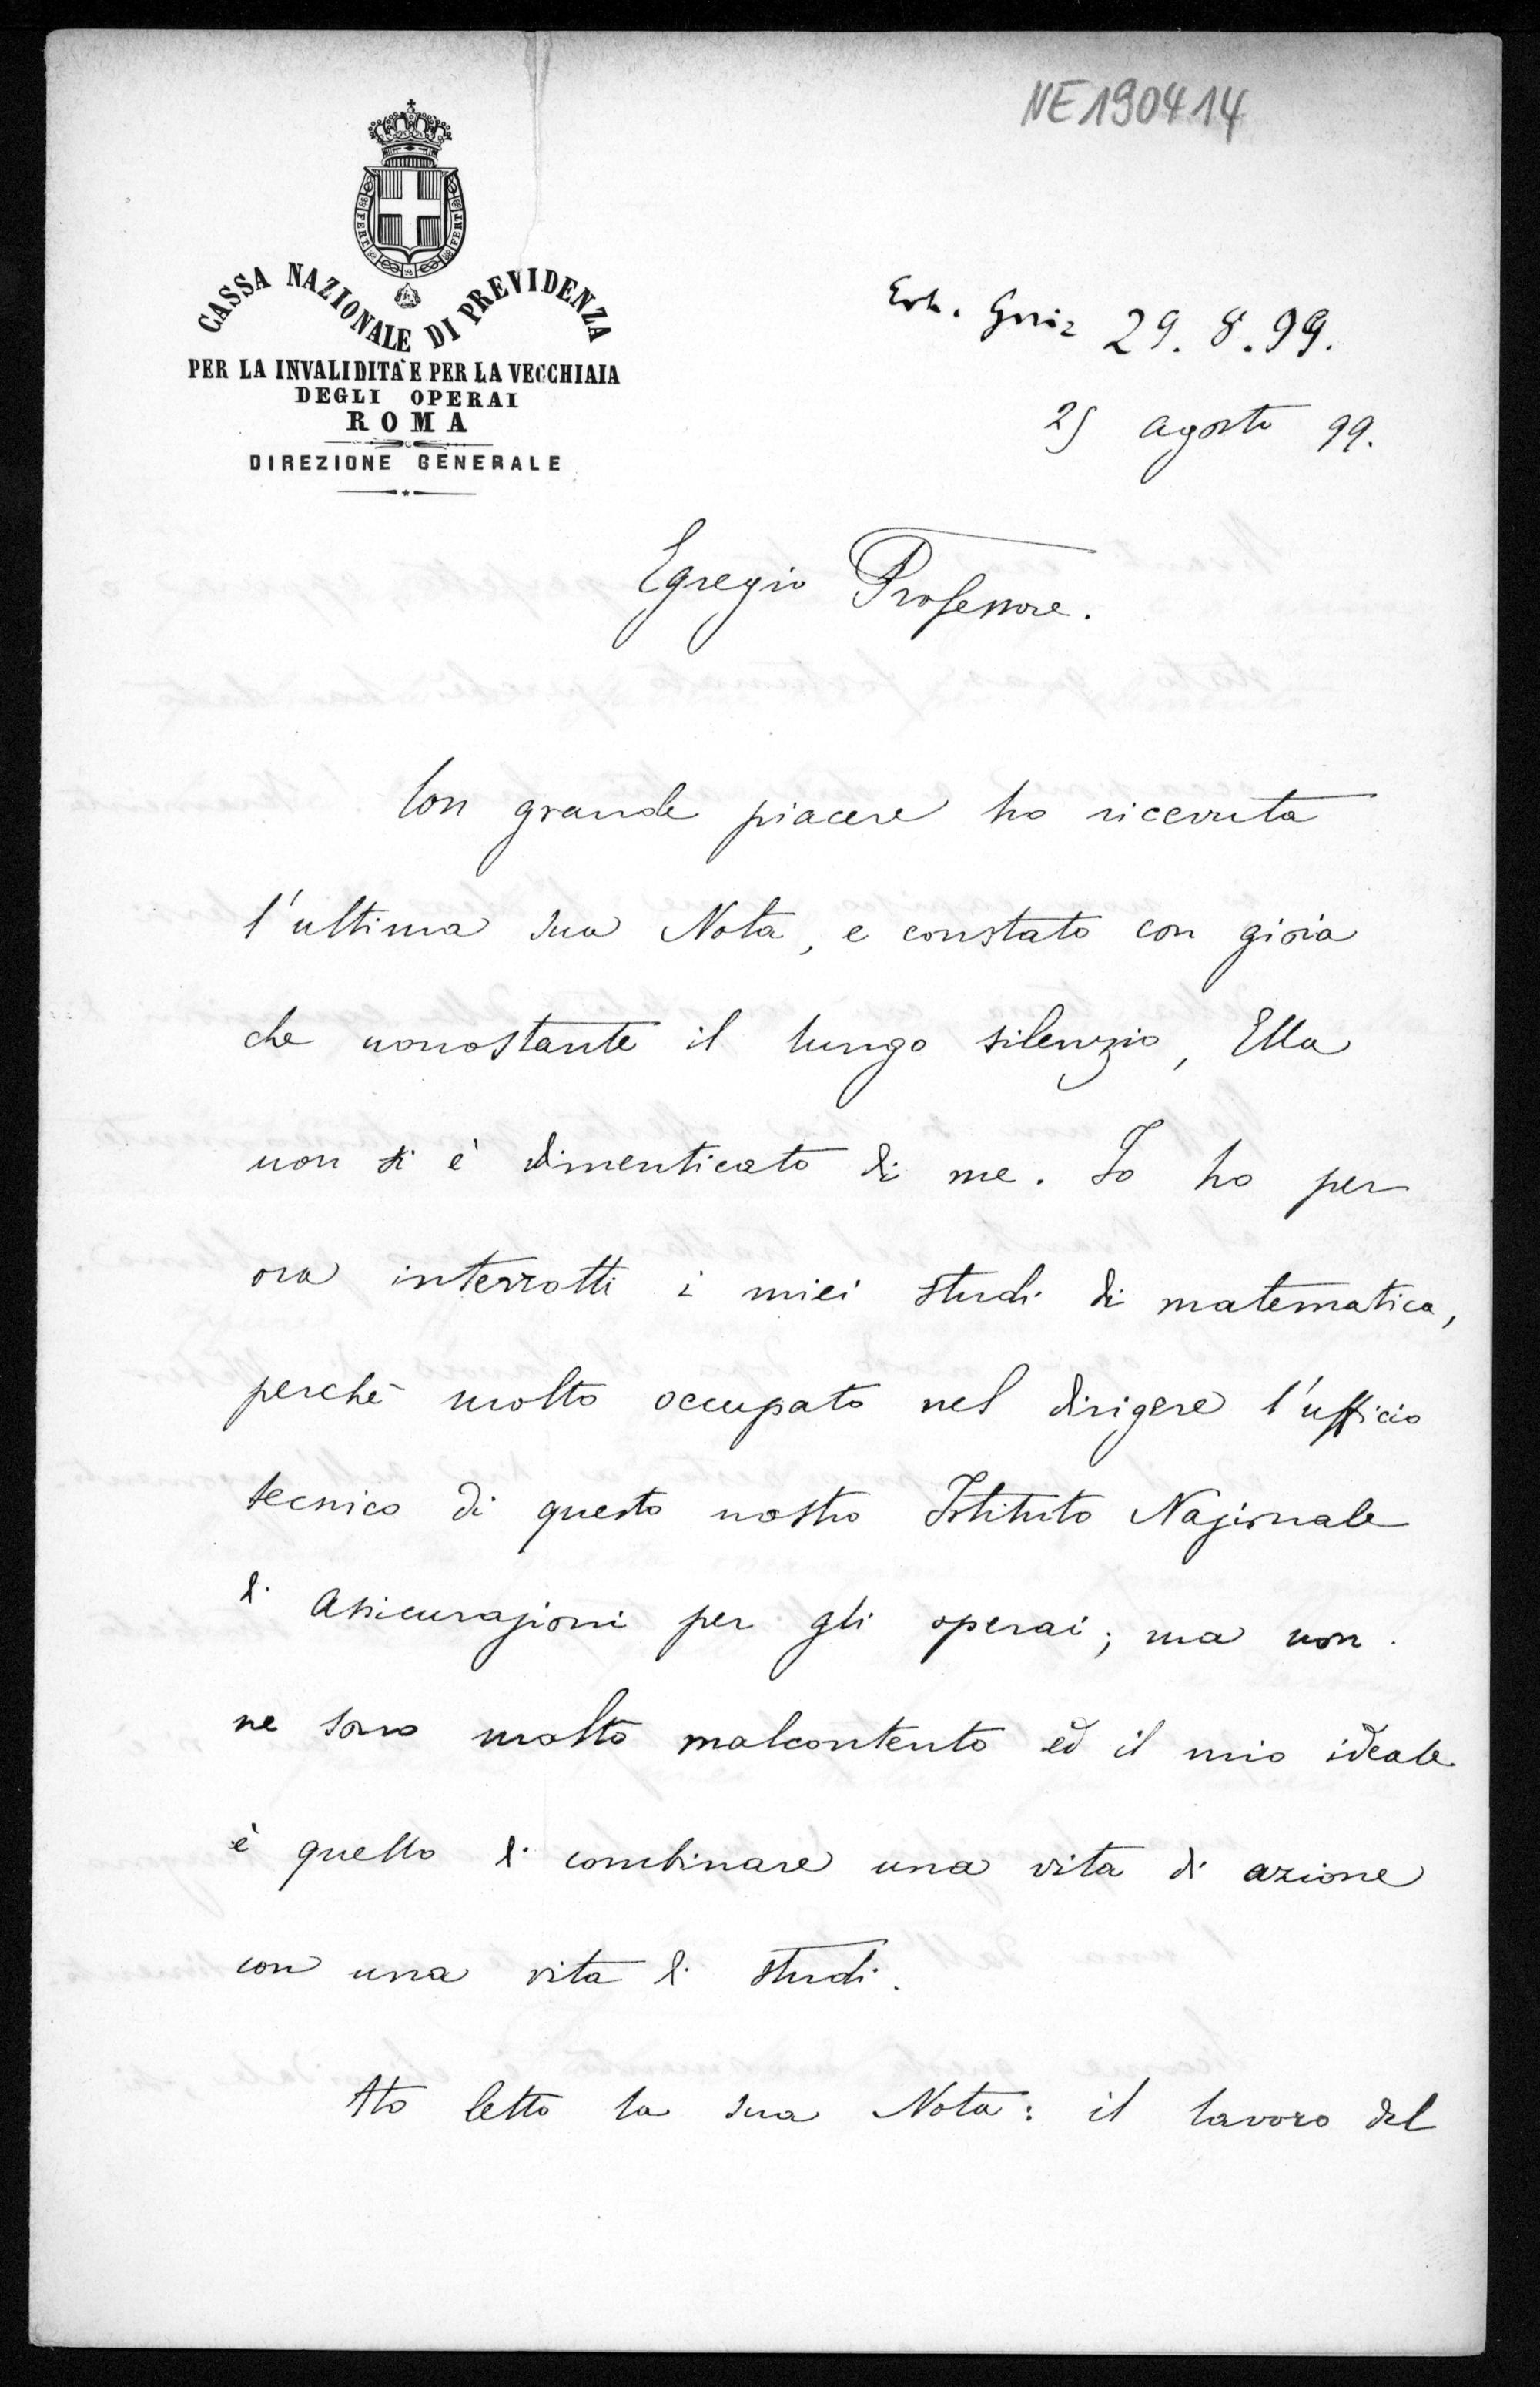 NE190414
FERT FERT
CASSA NAZIONALE DI PREVIDENZA
PER LA INVALIDITÀ E PER LA VECCHIAIA
DEGLI OPERAI
ROMA
DIREZIONE GENERALE
29. 8. 99.
25 agosto 99.
Egregio Professore.
Con grande piacere ho ricevuta
l'ultima sua Nota, e constato con gioia
che nonostante il lungo silenzio, Ella
non si è dimenticato di me. Io ho per
ora interrotti i miei studi di matematica,
perchè molto occupato nel dirigere l'ufficio
tecnico di questo nostro Istituto Nazionale
di Assicurazioni per gli operai; ma non
ne sono molto malcontento ed il mio ideale
è quello di combinare una vita di azione
con una vita di studi.
Ho letto la sua Nota: il lavoro del